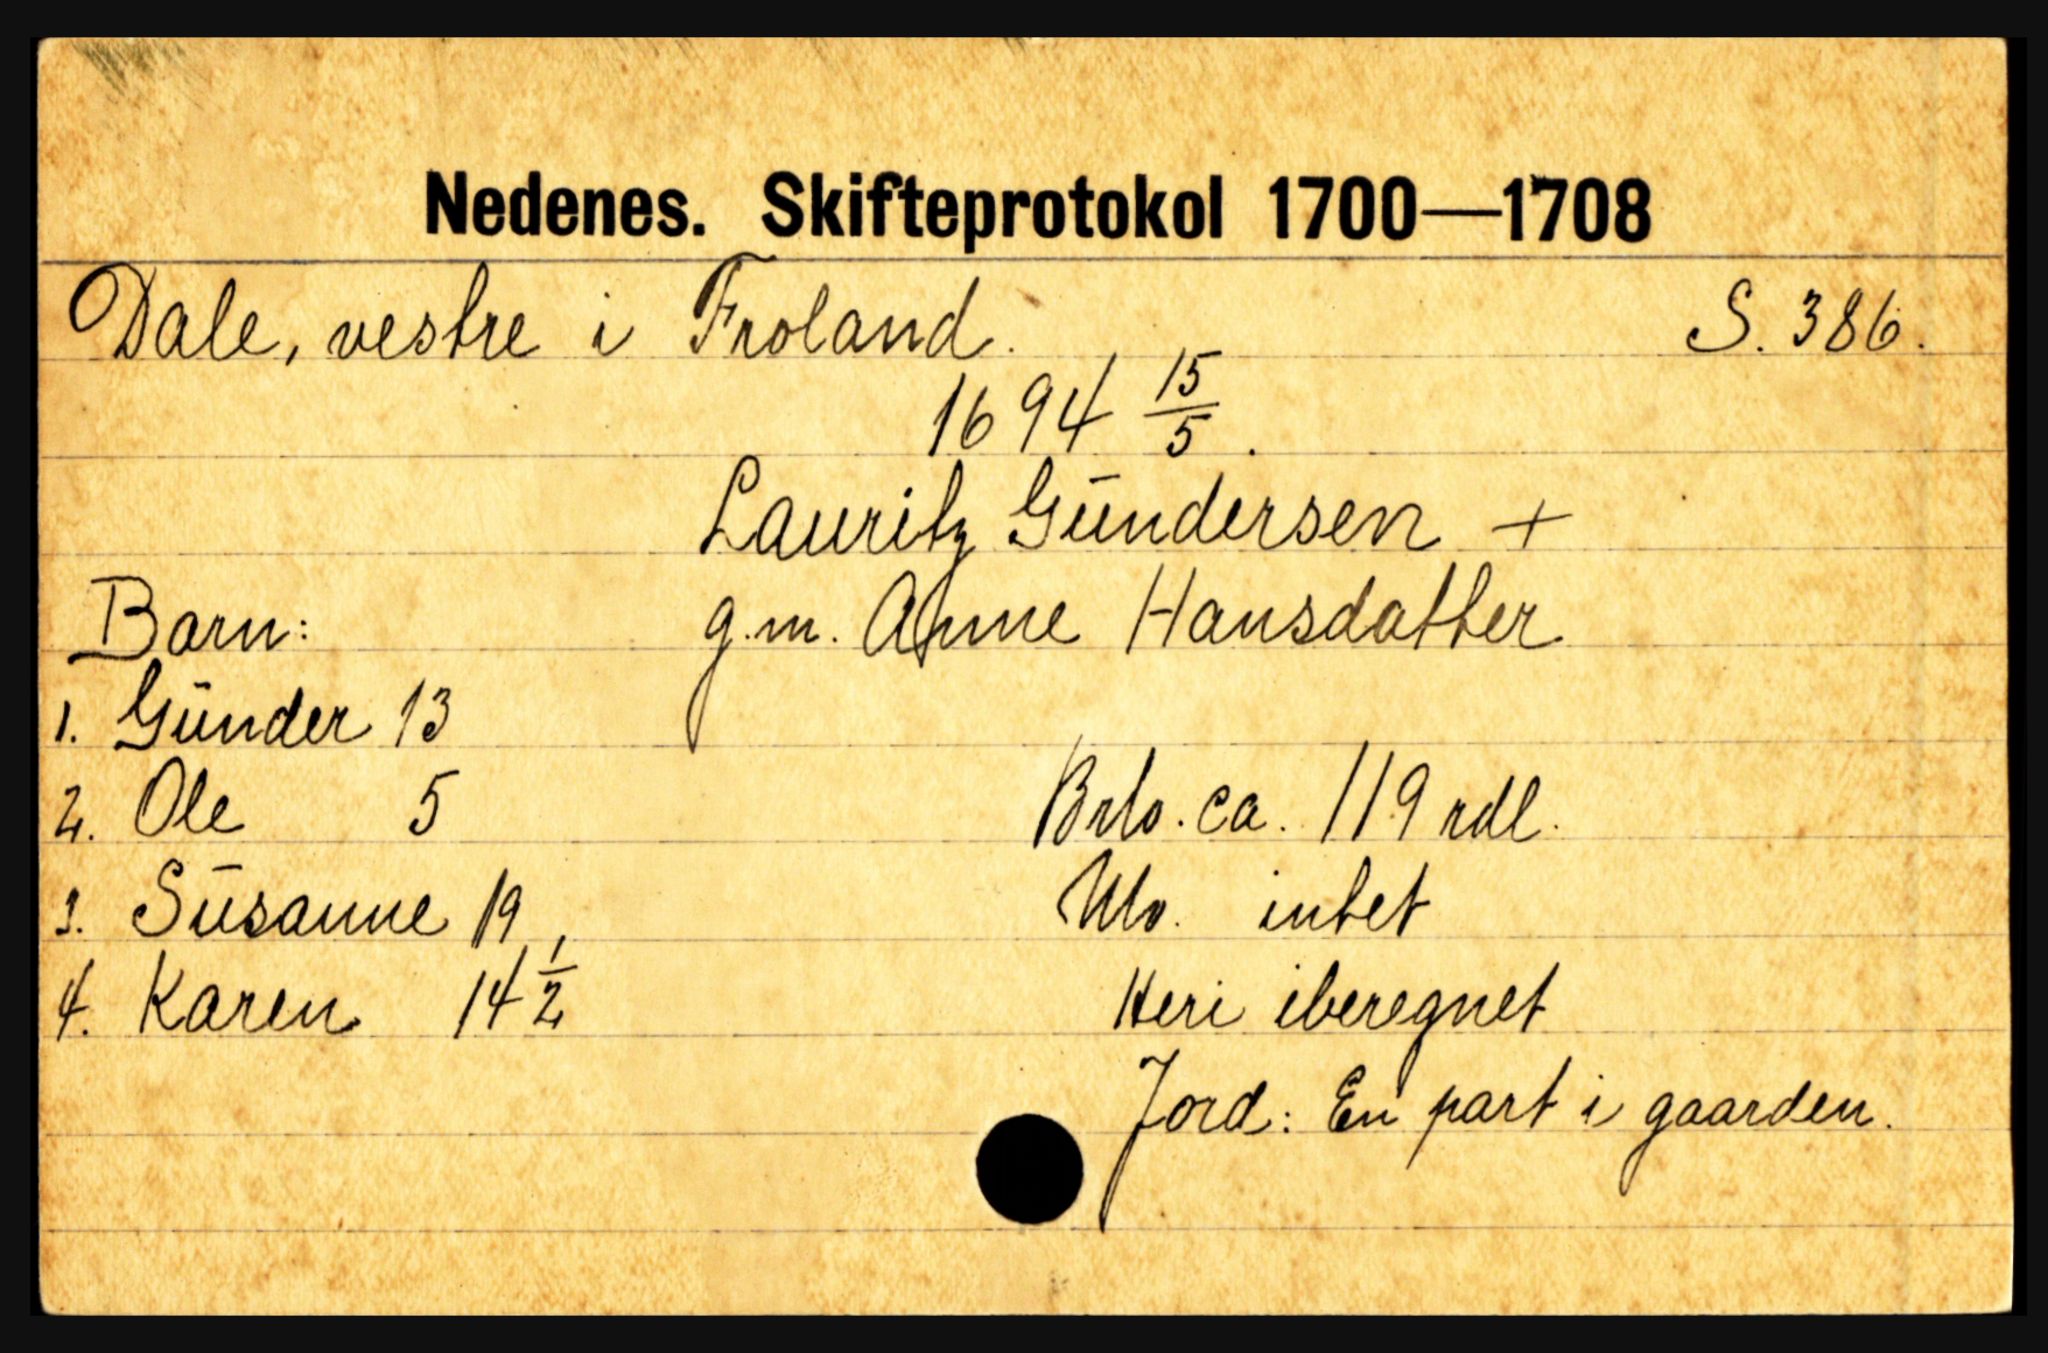 Nedenes. Skifteprotokol 1700—1708
Dale, vestre i Froland. S. 386.
1694 15/5.
Lauritz Gūndersen +
g.m. Anne Hansdatter
Barn:
1. Gūnder 13
2. Ole 5
Brto. ca. 119 rdl.
3. Sūsanne 19
Nto. intet
4. Karen 14 1/2
Heri iberegnet
Jord: En part i gaarden.